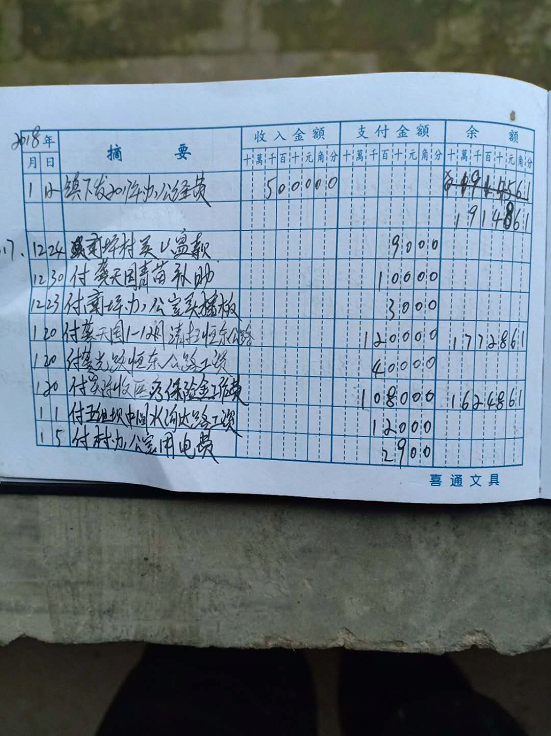 2018年 摘 要 收入金额 支付金额 余 额
月 日 十萬千百十元角分 十萬千百十元角分 十萬千百十元角分
1 12 镇下发2017年办公经费 500000
1914861
17. 12 24 南坪村买U盘款 9000
12 30 付龚天国青苗补助 10000
12 23 付南坪办公室买插板 3000
1 20 付龚天国1-12月清扫恒东公路 120000 1772861
1 20 付龚光路恒东公路工资 40000
1 20 付 收医疗保险金工班费 108000 1624861
1 1 付五组坝中间水沟 工资 12000
1 5 付村办公室用电费 2900
喜通文具